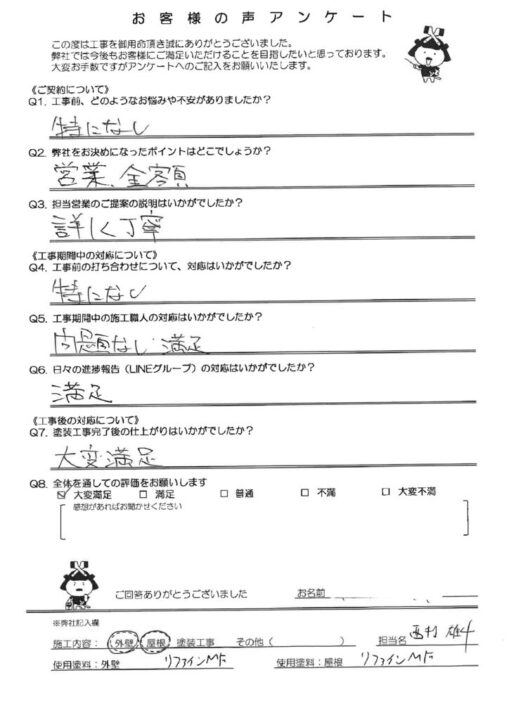 お客様の声アンケート
この度は工事を御用命頂き誠にありがとうございました。
弊社では今後もお客様にご満足いただけることを目指したいと思っております。
大変お手数ですがアンケートへのご記入をお願いいたします。
《ご契約について》
Q1. 工事前、どのようなお悩みや不安がありましたか？
特になし
Q2. 弊社をお決めになったポイントはどこでしょうか？
営業、金額
Q3. 担当営業のご提案の説明はいかがでしたか？
詳しく丁寧
《工事期間中の対応について》
Q4. 工事前の打ち合わせについて、対応はいかがでしたか？
特になし
Q5. 工事期間中の施工職人の対応はいかがでしたか？
問題ない 満足
Q6. 日々の進捗報告（LINEグループ）の対応はいかがでしたか？
満足
《工事後の対応について》
Q7. 塗装工事完了後の仕上がりはいかがでしたか？
大変満足
Q8. 全体を通しての評価をお願いします
☑ 大変満足 □ 満足 □ 普通 □ 不満 □ 大変不満
感想があればお聞かせください
ご回答ありがとうございました お名前
※弊社記入欄
施工内容： 外壁 屋根 塗装工事 その他（ ） 担当名 西村
使用塗料：外壁 リファインMF 使用塗料：屋根 リファインMF